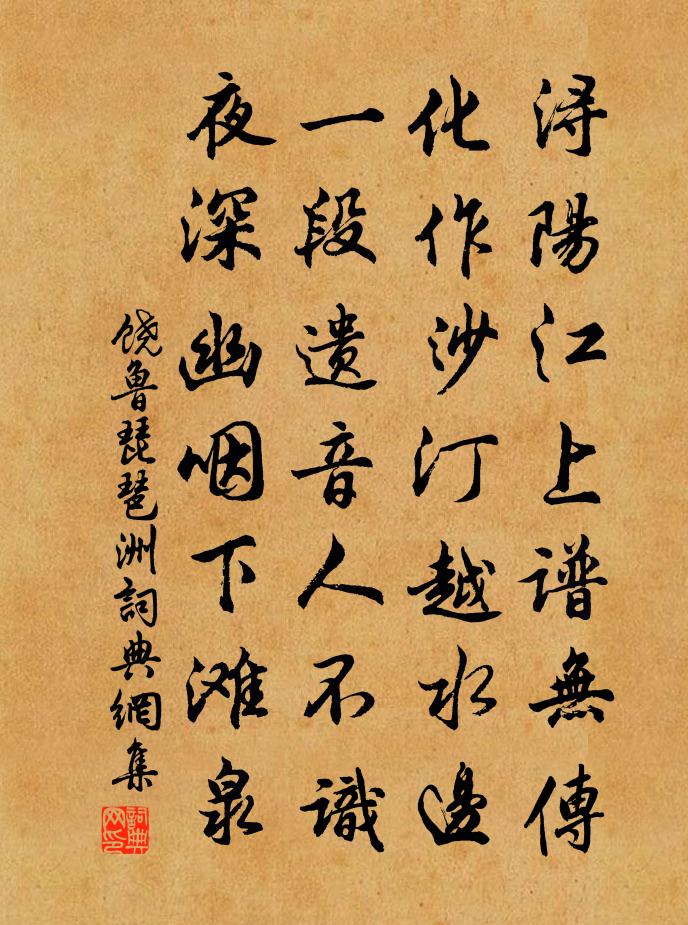 浔陽江上譜無傳
化作沙汀越水邊
一段遺音人不識
夜深幽咽下滩泉
饒魯琵琶洲詞典網集
詞典网印